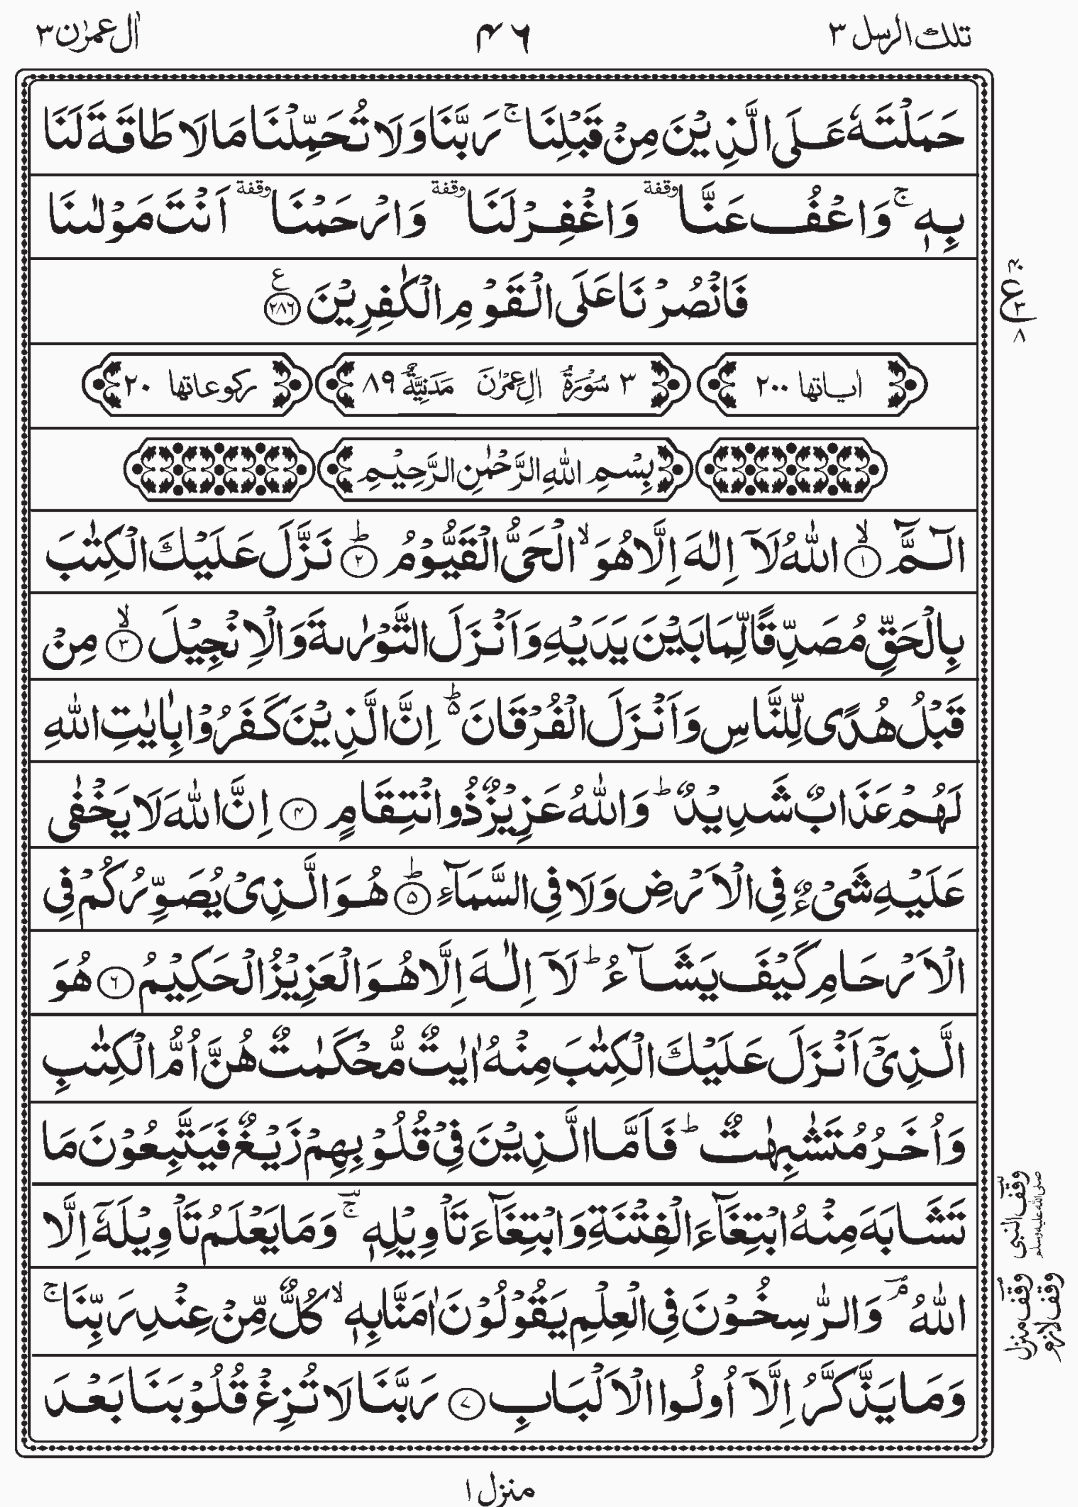 تلك الرسل ٣ ٤٦ اٰل عمرٰن ٣
حَمَلْتَهٗ عَلَى الَّذِيْنَ مِنْ قَبْلِنَا ۚ رَبَّنَا وَلَا تُحَمِّلْنَا مَا لَا طَاقَةَ لَنَا
بِهٖ ۚ وَاعْفُ عَنَّا ۥوقفة وَاغْفِرْ لَنَا ۥوقفة وَارْحَمْنَا ۥوقفة اَنْتَ مَوْلٰىنَا
فَانْصُرْنَا عَلَى الْقَوْمِ الْكٰفِرِيْنَ ﴿٢٨٦﴾ ع
اٰياتها ٢٠٠ ٣ سُوْرَةُ اٰلِ عِمْرٰنَ مَدَنِيَّةٌ ٨٩ ركوعاتها ٢٠
بِسْمِ اللّٰهِ الرَّحْمٰنِ الرَّحِيْمِ
الٓـمّٓ ۙ﴿١﴾ اللّٰهُ لَاۤ اِلٰهَ اِلَّا هُوَ ۙ الْحَىُّ الْقَيُّوْمُ ؕ﴿٢﴾ نَزَّلَ عَلَيْكَ الْكِتٰبَ
بِالْحَقِّ مُصَدِّقًا لِّمَا بَيْنَ يَدَيْهِ وَاَنْزَلَ التَّوْرٰىةَ وَالْاِنْجِيْلَ ۙ﴿٣﴾ مِنْ
قَبْلُ هُدًى لِّلنَّاسِ وَاَنْزَلَ الْفُرْقَانَ ؕ۵ اِنَّ الَّذِيْنَ كَفَرُوْا بِاٰيٰتِ اللّٰهِ
لَهُمْ عَذَابٌ شَدِيْدٌ ؕ وَاللّٰهُ عَزِيْزٌ ذُو انْتِقَامٍ ﴿٤﴾ اِنَّ اللّٰهَ لَا يَخْفٰى
عَلَيْهِ شَىْءٌ فِى الْاَرْضِ وَلَا فِى السَّمَآءِ ؕ﴿٥﴾ هُوَ الَّذِىْ يُصَوِّرُكُمْ فِى
الْاَرْحَامِ كَيْفَ يَشَآءُ ؕ لَاۤ اِلٰهَ اِلَّا هُوَ الْعَزِيْزُ الْحَكِيْمُ ﴿٦﴾ هُوَ
الَّذِىْۤ اَنْزَلَ عَلَيْكَ الْكِتٰبَ مِنْهُ اٰيٰتٌ مُّحْكَمٰتٌ هُنَّ اُمُّ الْكِتٰبِ
وَاُخَرُ مُتَشٰبِهٰتٌ ؕ فَاَمَّا الَّذِيْنَ فِىْ قُلُوْبِهِمْ زَيْغٌ فَيَتَّبِعُوْنَ مَا
تَشَابَهَ مِنْهُ ابْتِغَآءَ الْفِتْنَةِ وَابْتِغَآءَ تَاْوِيْلِهٖ ۚ وَمَا يَعْلَمُ تَاْوِيْلَهٗۤ اِلَّا
اللّٰهُ ۘ وَالرّٰسِخُوْنَ فِى الْعِلْمِ يَقُوْلُوْنَ اٰمَنَّا بِهٖ ۙ كُلٌّ مِّنْ عِنْدِ رَبِّنَا ۚ
وَمَا يَذَّكَّرُ اِلَّاۤ اُولُوا الْاَلْبَابِ ﴿٧﴾ رَبَّنَا لَا تُزِغْ قُلُوْبَنَا بَعْدَ
ع ٨
وقف النبى صلى الله عليه وسلم
وقف منزل
وقف لازم
منزل ١